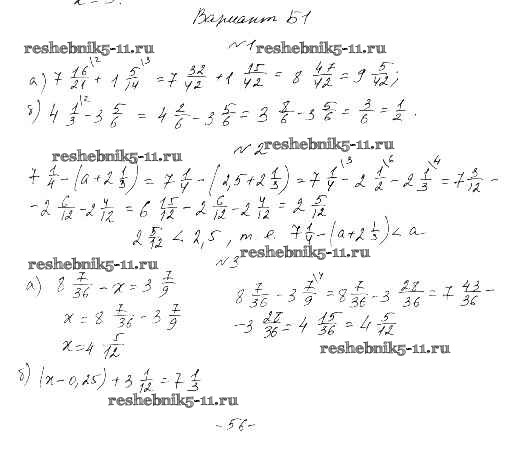 Вариант Б1
reshebnik5-11.ru №1 reshebnik5-11.ru
а) 7 16/21 \2 + 1 5/14 \3 = 7 32/42 + 1 15/42 = 8 47/42 = 9 5/42;
б) 4 1/3 \2 - 3 5/6 = 4 2/6 - 3 5/6 = 3 8/6 - 3 5/6 = 3/6 = 1/2.
reshebnik5-11.ru №2 reshebnik5-11.ru
7 1/4 - (a + 2 1/3) = 7 1/4 - (2,5 + 2 1/3) = 7 1/4 \3 - 2 1/2 \6 - 2 1/3 \4 = 7 3/12 -
- 2 6/12 - 2 4/12 = 6 15/12 - 2 6/12 - 2 4/12 = 2 5/12
2 5/12 < 2,5, т.е. 7 1/4 - (a + 2 1/3) < a
reshebnik5-11.ru №3 reshebnik5-11.ru
а) 8 7/36 - x = 3 7/9
x = 8 7/36 - 3 7/9
x = 4 5/12
8 7/36 - 3 7/9 \4 = 8 7/36 - 3 28/36 = 7 43/36 -
- 3 28/36 = 4 15/36 = 4 5/12
reshebnik5-11.ru
б) (x - 0,25) + 3 1/12 = 7 1/3
reshebnik5-11.ru
- 56 -